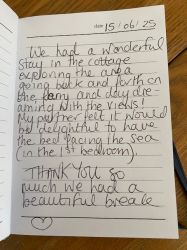 date 15/06/25
We had a wonderful
stay in the cottage
exploring the area
going back and forth on
the ferry and day dre-
aming with the views!
My partner felt it would
be delightful to have
the bed facing the sea
(in the 1st bedroom).
THANK YOU so
much we had a
beautiful break